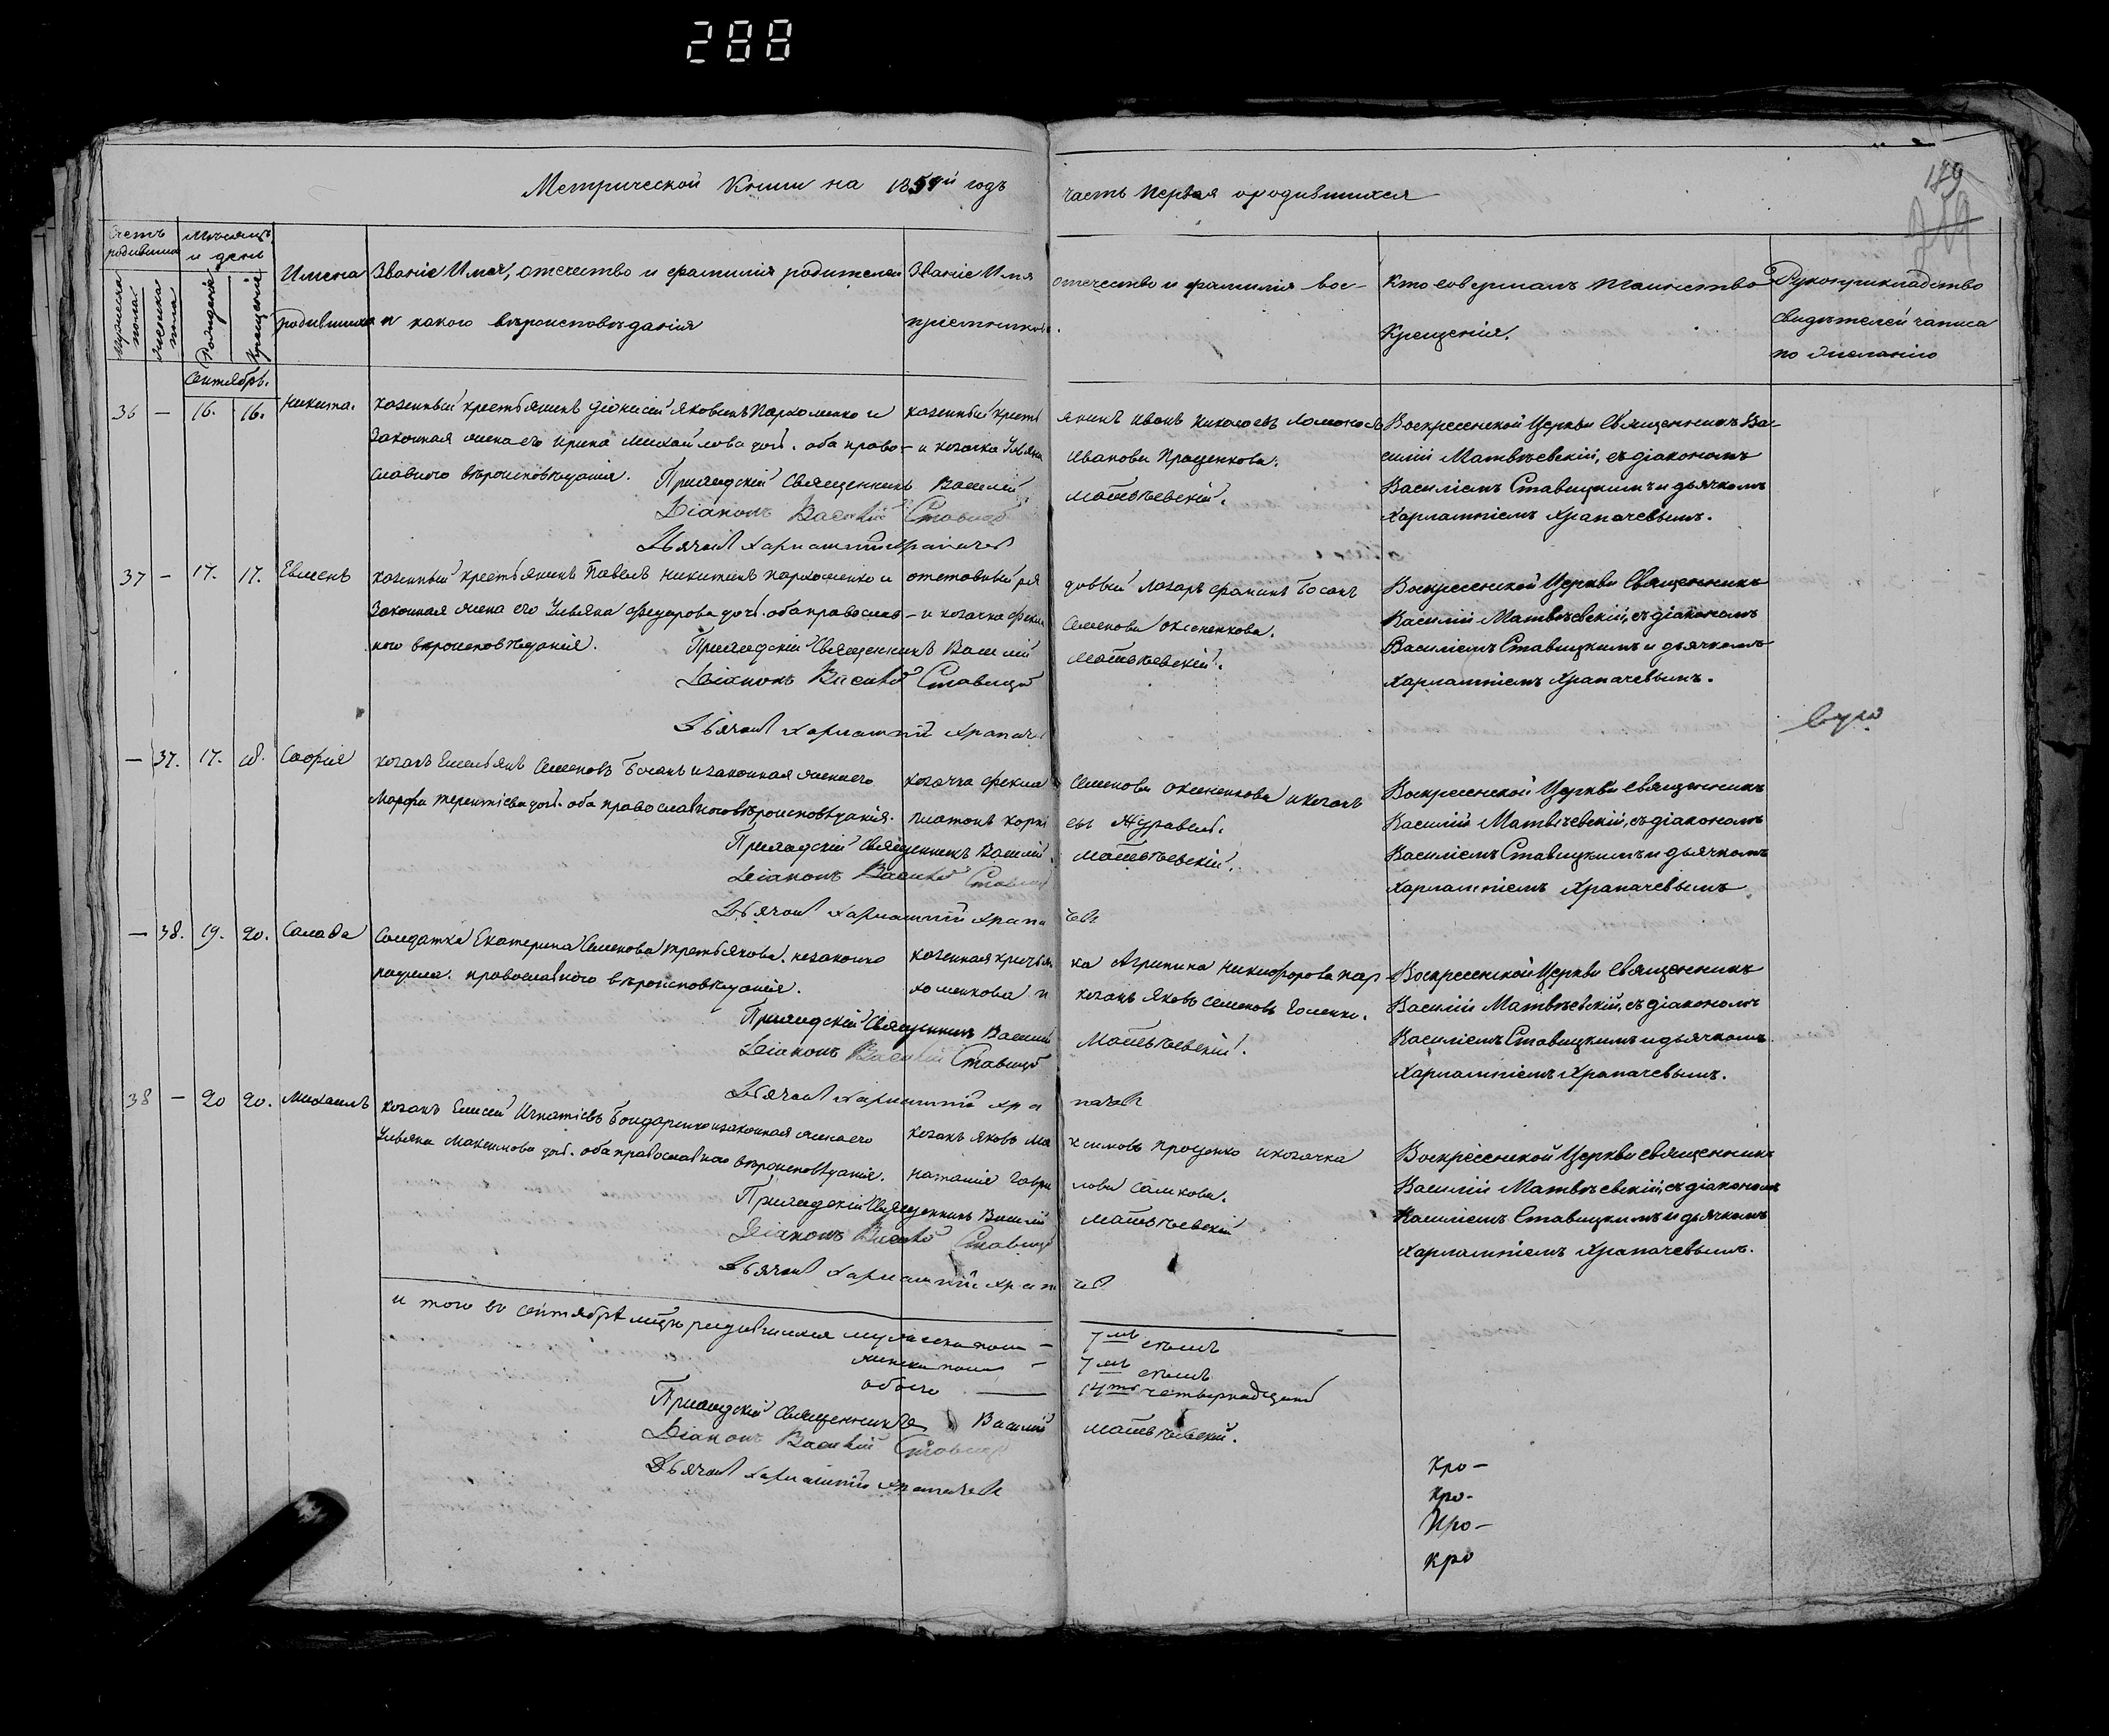 288
189
Метрической Книги на 1859й годъ
часть первая о родившихся
Счетъ родившихся
Мужеска пола
Женска пола
Мѣсяцъ и день
Рожденія
Крещенія
Имена родившихся
Званіе Имя, отечество и фамилія родителей и какого вѣроисповѣданія
Званіе Имя отечество и фамилія воспріемниковъ.
Кто совершалъ таинство Крещенія.
Рукоприкладство свидѣтелей записи по желанію
Сентябрь.
36 — 16. 16. Никита.
казенный крестьянинъ Діонисій Яковлевъ Пархоменко и
Законная жена его Ирина Михайлова доч. оба право-
славного вѣроисповѣданія.
казенный крестьянинъ Иванъ Николаевъ
и козачка Ульяна Иванова Проценкова.
Воскресенской Церкви Священникъ Ва-
силій Матвѣевскій, съ діакономъ
Василіемъ Ставицкимъ и дьячкомъ
Харлампіемъ Храпачевымъ.
Приходскій Священникъ Василій Матвѣевскій.
Діаконъ Василій Ставицкій
Дьячокъ Харлампій Храпачевъ
37 — 17. 17. Евменъ
казенный крестьянинъ Павелъ Никитинъ Пархоменко и
Законная жена его Ульяна Федорова доч. оба православ-
ного вѣроисповѣданія.
отставный рядовый Лазарь
и козачка Фекла Семенова
Воскресенской Церкви Священникъ
Василій Матвѣевскій, съ діакономъ
Василіемъ Ставицкимъ и дьячкомъ
Харлампіемъ Храпачевымъ.
Приходскій Священникъ Василій Матвѣевскій.
Діаконъ Василій Ставицкій
Дьячокъ Харлампій Храпачевъ
— 37. 17. 18. Софія
козакъ Емельянъ Семеновъ Босакъ и законная жена его
Марфа Терентіева доч. оба православного вѣроисповѣданія.
козачка Фекла Семенова и козакъ
Платонъ Журавель.
Воскресенской Церкви Священникъ
Василій Матвѣевскій, съ діакономъ
Василіемъ Ставицкимъ и дьячкомъ
Харлампіемъ Храпачевымъ
Приходскій Священникъ Василій Матвѣевскій.
Діаконъ Василій Ставицкій
Дьячокъ Харлампій Храпачевъ
— 38. 19. 20.
Солдатка Екатерина Семенова Третьякова. незаконно
православного вѣроисповѣданія.
Агрипина Никифорова Пар-
хоменкова и козакъ Яковъ Семеновъ
Воскресенской Церкви Священникъ
Василій Матвѣевскій, съ діакономъ
Василіемъ Ставицкимъ и дьячкомъ
Харлампіемъ Храпачевымъ.
Приходскій Священникъ Василій Матвѣевскій.
Діаконъ Василій Ставицкій
Дьячокъ Харлампій Храпачевъ
38 — 20 20. Михаилъ
козакъ Елисей Игнатіевъ Бондаренко и законная жена его
Ульяна Максимова доч. оба православного вѣроисповѣданія.
козакъ Яковъ Максимовъ Проценко и козачка
Наталія Гаврилова Салкова.
Воскресенской Церкви Священникъ
Василій Матвѣевскій, съ діакономъ
Василіемъ Ставицкимъ и дьячкомъ
Харлампіемъ Храпачевымъ.
Приходскій Священникъ Василій Матвѣевскій
Діаконъ Василій Ставицкій
Дьячокъ Харлампій Храпачевъ
итого въ Сентябрѣ родившихся мужеска пола — 7мь семь
женска пола — 7мь семь
обоего — 14ть четырнадцать
Приходскій Священникъ Василій Матвѣевскій.
Діаконъ Василій Ставицкій
Дьячокъ Харлампій Храпачевъ
Кро-
Кро-
Про-
кро